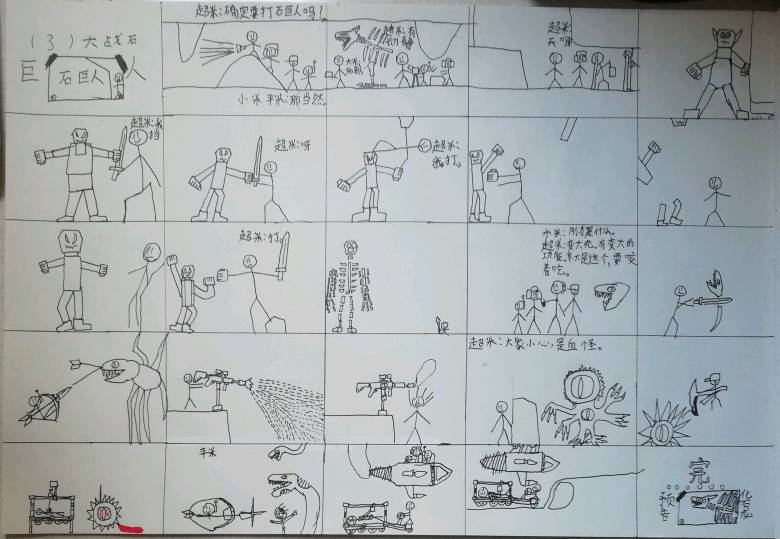 (3)大战石
巨 人
石巨人
超米:确定要打石巨人吗!
小米 平米:那当然。
超米:有
动静
大米
超米:
天哪
超米:我
挡
超米:呀
超米:
我打。
超米:打
小米:刚才是什么。
超米:变大死,有变大的
功能,就是这个,要咬
着吃。
超米:大家小心,是血怪。
平米
完
预告